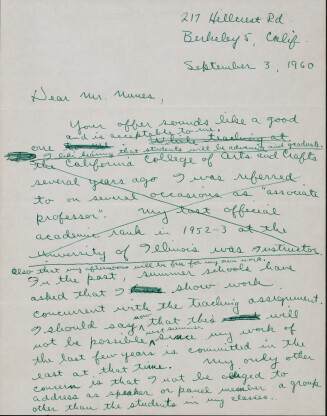 217 Hillcrest Rd
Berkeley 5, Calif.
September 3, 1960
Dear Mr. Nunes,
Your offer sounds like a good
and is acceptable to me.
one While teaching at
I like hearing that students will be advanced and graduate.
the California College of Arts and Crafts
several years ago I was referred
to on several occasions as "associate
professor". My last official
academic rank in 1952-3 at the
University of Illinois was instructor.
Also that my afternoons will be free for my own work.
In the past, summer schools have
asked that I show work
concurrent with the teaching assignment.
I should say now that this will
not be possible next summer since my work of
the last few years is committed in the
east at that time. My only other
concern is that I not be asked to
address as speaker or panel member a group
other than the students in my classes.